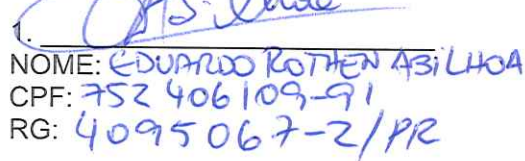 1.
NOME: EDUARDO ROTHEN ABILHOA
CPF: 752 406 109-91
RG: 4095067-2/PR